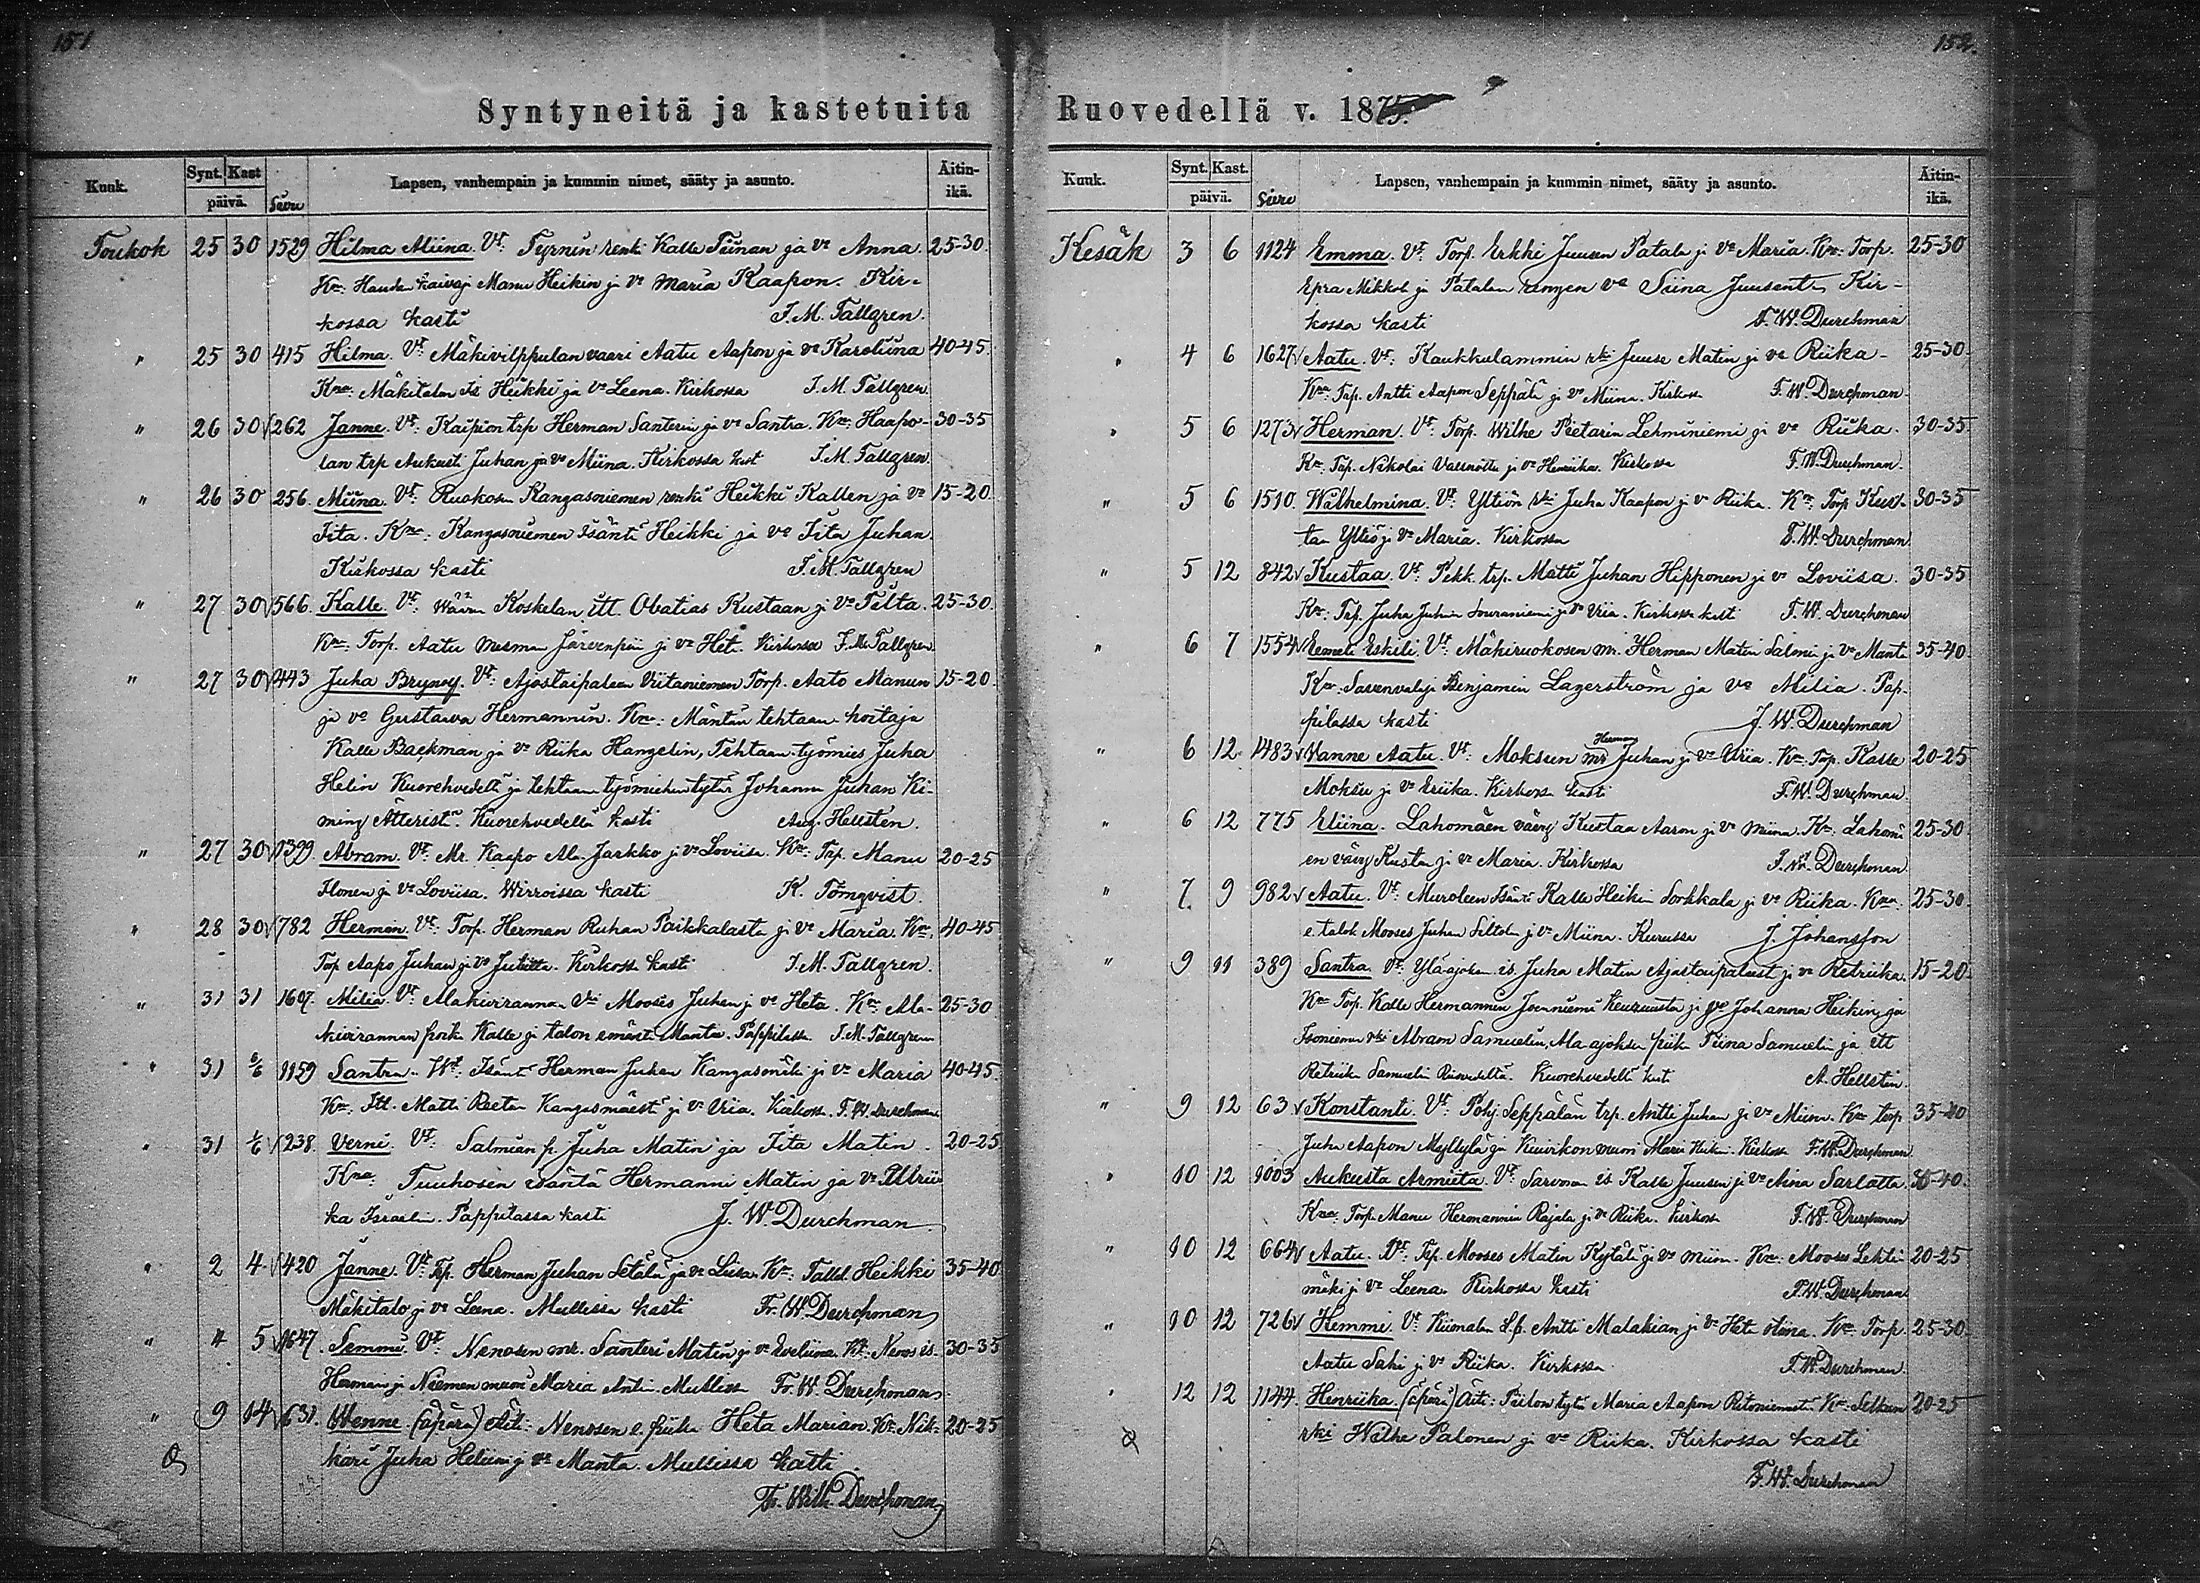 151
Syntyneitä ja kastetuita
Kuuk. Synt. Kast päivä. Sivu Lapsen, vanhempain ja kummin nimet, sääty ja asunto. Äitin-ikä.
Toukok 25 30 1529 Hilma Miina. Vt: Tyrnin renki Kalle Tiinan ja vo Anna. 25-30.
Kr: Haudan kaivaja Manu Heikin ja vo Maria Kaapon. Kir-
kossa kasti J. M. Tallgren.
" 25 30 415 Hilma. Vt: Mäkivilppulan vaari Aatu Aapon ja vo Karoliina 40-45.
Kr: Mäkitalon is Heikki ja vo Leena. Kirkossa J. M. Tallgren.
" 26 30 √262 Janne. Vt: Kaipion trp Herman Santerin ja vo Santra. Kr: Haapo- 30-35
lan trp Aukusti Juhan ja vo Miina. Kirkossa kast J. M. Tallgren.
" 26 30 256. Miina. Vt: Ruokosen Kangasniemen renki Heikki Kallen ja vo 15-20.
Iita. Kr: Kangasniemen Isäntä Heikki ja vo Iita Juhan
Kirkossa kasti J. M. Tallgren
" 27 30 √566. Kalle. Vt: Koskelan itt. Obatias Kustaan ja vo Tilta. 25-30.
Kr: Torp. Aatu Järvenpää ja vo Het. Kirkossa J. M. Tallgren.
" 27 30 √443 Juha Brynolf. Vt: Ajostaipaleen Viitaniemen Torp. Aato Manun 15-20.
ja vo Gustaava Hermannin. Kr: Mäntän tehtaan hoitaja
Kalle Backman ja vo Riika Hangelin, Tehtaan työmies Juha
Helin Kuorehvedeltä ja tehtaan työmiehen tytär Johanna Juhan Ki-
ming Ätteristä. Kuorehvedellä kasti Aug. Hellsten.
" 27 30 √1399. Abram. Vt: Mr. Kaapo Ala-Jarkko ja vo Loviisa. Kr: Trp. Manu 20-25
Ilonen ja vo Loviisa. Wirroissa kasti K. Törnqvist.
" 28 30 √782 Herman. Vt: Torp. Herman Ruhan Paikkalasta ja vo Maria. Kr: 40-45
Torp Aapo Juhan ja vo Julitta. Kirkossa kasti J. M. Tallgren.
" 31 31 1607. Milia. Vt: Alakivirannan Mooses Juhan j. vo Heta. Kr: Ala- 25-30
kivirannan Kalle ja talon emäntä Manta. Pappilassa J. M. Tallgren
" 31 6/6 1159 Santra. Vt: Isäntä Herman Juhan Kangasmäki ja vo Maria 40-45.
Kr: Itt. Matti Reetan Kangasmäestä ja vo Vria. Kirkossa. F. W. Durchman
" 31 1/6 √238. Verni. Vt: Salmian p. Juha Matin ja Iita Matin 20-25
Kr: Tuuhosen isäntä Hermanni Matin ja vo Ulrii-
ka Israelin. Pappilassa kasti J. W. Durchman
" 2 4 √420 Janne. Vt: Trp. Herman Juhan Setälä ja vo Liisa. Kr: Talld. Heikki 35-40
Mäkitalo ja vo Leena. Mullissa kasti Fr. W. Durchman
" 4 5 √1647. Semmi. Vt: Nenosen mr. Santeri Matin ja vo Eveliina. Kr: Nenos is. 30-35
Herman ja Niemen muori Maria Antin. Mullissa Fr. W. Durchman
" 9 14 √631. Wenne (äpärä) Äiti: Nenosen e. piika Heta Marian. Kr: Nik- 20-25
kari Juha Helin ja vo Manta. Mullissa kasti
Fr. Wilh Durchman
152.
Ruovedellä v. 1875.
Kuuk. Synt. Kast. päivä. Sivu Lapsen, vanhempain ja kummin nimet, sääty ja asunto. Äitin-ikä.
Kesäk 3 6 1124 Emma. Vt: Torp. Erkki Juusen Patala ja vo Maria. Kr: Torp. 25-30
Epra Mikkol ja Patalan rengen vo Siina Juusent. Kir-
kossa kasti F. W. Durchman
" 4 6 1627√ Aatu. Vt: Kaukkulammin rki Juuse Matin ja vo Riika. 25-30.
Kr: Trp. Antti Aapon Seppälä ja vo Miina. Kirkossa F. W. Durchman.
" 5 6 1273√ Herman. Vt: Torp. Wilhe Pietarin Lehminiemi ja vo Riika. 30-35
Kr: Trp. Nikolai ja vo Henriika. Kirkossa F. W. Durchman.
" 5 6 1510. Wilhelmina. Vt: Yltiön rki Juha Kaapon ja vo Riika. Kr: Torp Kus- 30-35
taa Yltiö ja vo Maria. Kirkossa F. W. Durchman.
" 5 12 842√ Kustaa. Vt: Pekk. trp. Matti Juhan Hipponen ja vo Loviisa. 30-35
Kr: Trp. Juha Juhan Souraniemi ja vo Vria. Kirkossa kasti F. W. Durchman
" 6 7 1554√ Eemeli Eskili. Vt: Mäkiruokosen mr. Herman Matin Salmi ja vo Manta 35-40
Kr: Benjamin Lagerström ja vo Milia. Pap-
pilassa kasti J. W. Durchman
" 6 12. 1483√ Vanne Aatu. Vt: Moksun mr Herman Juhan ja vo Vria. Kr: Trp. Kalle 20-25
Moksu ja vo Eriika. Kirkossa kasti F. W. Durchman.
" 6 12 775 Eliina. Lahomäen väwy Kustaa Aaron ja vo Miina. Kr: Lahomä 25-30
en väwy Kustaa ja vo Maria. Kirkossa F. W. Durchman
" 7. 9 982√ Aatu. Vt: Muroleen Isäntä Kalle Heikin Sorkkala ja vo Riika. Kr: 25-30.
e. talok Mooses Juhan Siltola ja vo Miina. Kurussa J. Johansson
" 9 11 389 Santra. Vt: Yläajoksen is. Juha Matin Ajostaipaleest ja vo Retriika. 15-20
Kr: Torp. Kalle Hermannin Joenniemi Keuruusta ja vo Johanna Heikin, ja
Isoniemen rki Abram Samuelin, Ala-ajoksen piika Tiina Samuelin ja itt
Retriika Samuelin Ruovedeltä. Kuorehvedellä kasti A. Hellstén.
" 9 12 63√ Konstanti. Vt: Pohj Seppälän trp. Antti Juhan ja vo Miina. Kr: torp 35-40
Juha Aapon Myllylä ja muori Maria Kirkossa F. W. Durchman.
" 10 12 1003 Aukusta Armiita. Vt: Sarvanan is Kalle Juusen ja vo Aina Sarlatta. 35-40.
Kr: Torp. Manu Hermannin Rajala ja vo Riika. Kirkossa F. W. Durchman
" 10 12 664√ Aatu. Vt: Trp. Mooses Matin Kytälä ja vo Miina. Kr: Mooses Lehti- 20-25
mäki ja vo Leena. Kirkossa kasti F. W. Durchman
" 10 12 726√ Hemmi. Vt: Kiimalan Antti Malakian ja vo Heta Kr: Torp. 25-30.
Aatu Sahi ja vo Riika. Kirkossa F. W. Durchman
" 12 12 1144. Henriika. (äpärä) Äiti: tytär Maria Aapon Ritoniemestä. Kr: 20-25
rki Wilhe Palonen ja vo Riika. Kirkossa kasti
F. W. Durchman